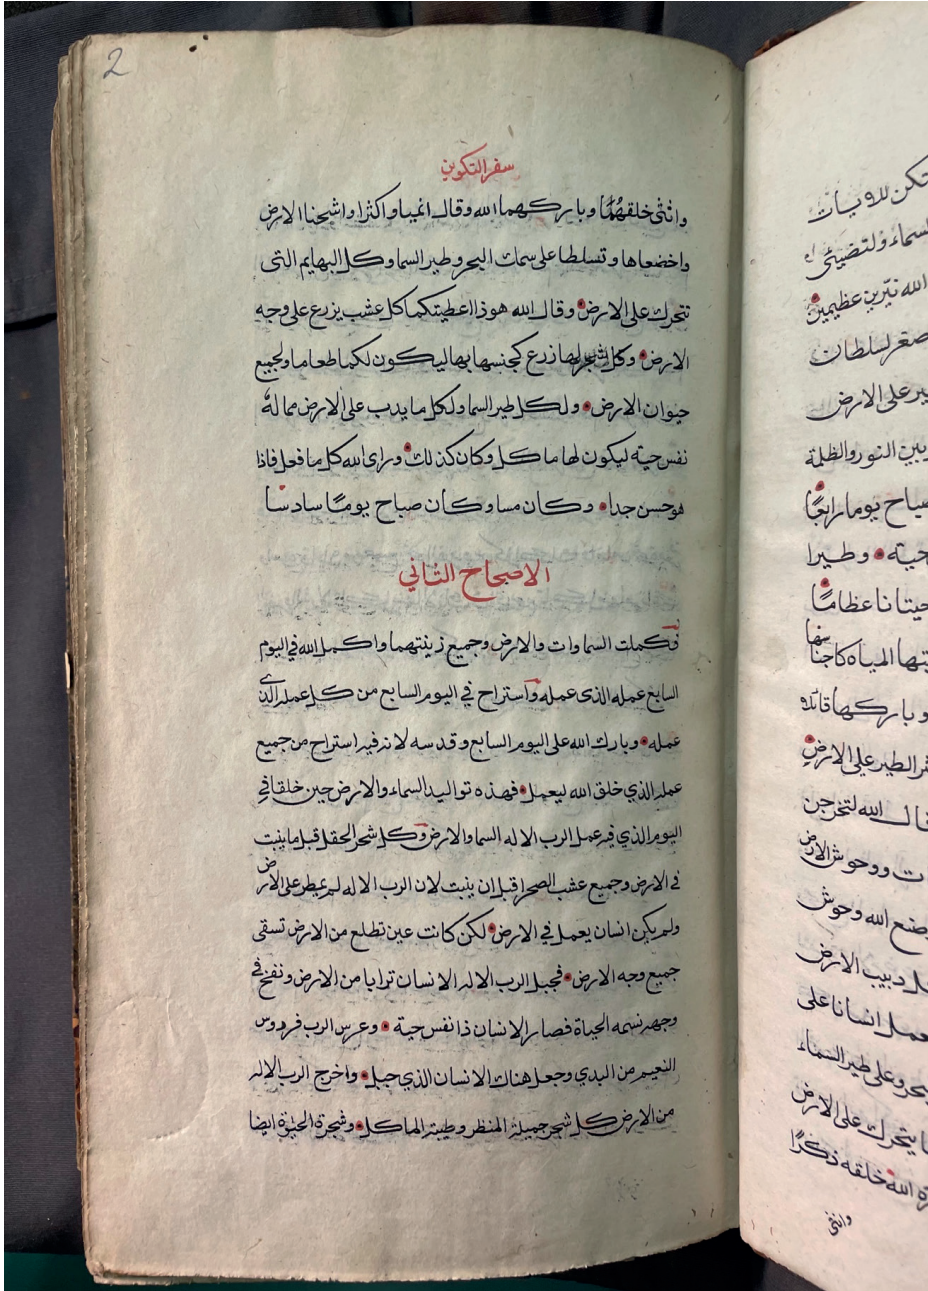 2
سفر التكوين
وانثى خلقهُمَا وباركهما الله وقال انميا واكثرا واشحنا الارض
واخضعاها وتسلطا على سمك البحر وطير السما وكل البهايم التى
تتحرك على الارض وقال الله هوذا اعطيتكما كل عشب يزرع على وجه
الارض وكل شجر لها زرع كجنسها بها ليكون لكما طعاما ولجميع
حيوان الارض ولكل طير السما ولكل ما يدب على الارض مما لهُ
نفس حيّه ليكون لها ماكل وكان كذلك وراى الله كل ما فعل فاذا
هو حسن جدا وكان مسا وكان صباح يومًا سادسا
الاصحاح الثاني
فكملت السماوات والارض وجميع زينتهما واكمل الله في اليوم
السابع عمله الذى عمله واستراح في اليوم السابع من كل عمله الذى
عمله وبارك الله على اليوم السابع وقدسه لانه فيه استراح من جميع
عمله الذي خلق الله ليعمل فهذه تواليد السماء والارض حين خلقا في
اليوم الذي فيه عمل الرب الاله السما والارض وكل شجر الحقل قبل ما ينبت
في الارض وجميع عشب الصحرا قبل ان ينبت لان الرب الاله لم يمطر على الارض
ولم يكن انسان يعمل في الارض لكن كانت عين تطلع من الارض تسقى
جميع وجه الارض فجبل الرب الاله الانسان ترابا من الارض ونفخ في
وجهه نسمه الحياة فصار الانسان ذا نفس حية وغرس الرب فردوس
النعيم من البدي وجعل هناك الانسان الذي جبل واخرج الرب الاله
من الارض كل شجر جميلة المنظر وطيبة الماكل وشجرة الحيوة ايضا
تكن للاويات
السماء ولتضيئى
الله نيّرين عظيمين
لسلطان
على الارض
بين النور والظلمة
صباح يوما رابعًا
حية وطيرا
حيتانا عظامًا
المياه كاجناسها
وباركها قائلا
الطير على الارض
الله لتخرجن
ووحوش الارض
الله وحوش
دبيب الارض
انسانا على
وعلى طير السماء
يتحرك على الارض
الله خلقه ذكرًا
وانثى